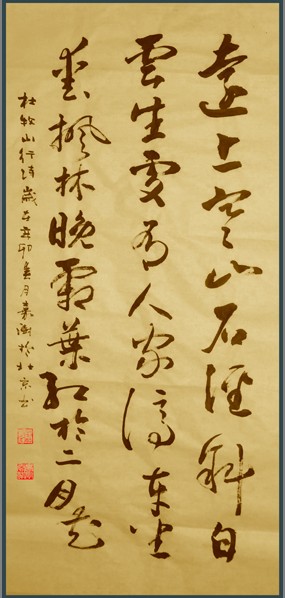 遠上寒山石徑斜白
雲生處有人家停車坐
愛楓林晚霜葉紅於二月花
杜牧山行詩歲在辛卯月於北京書